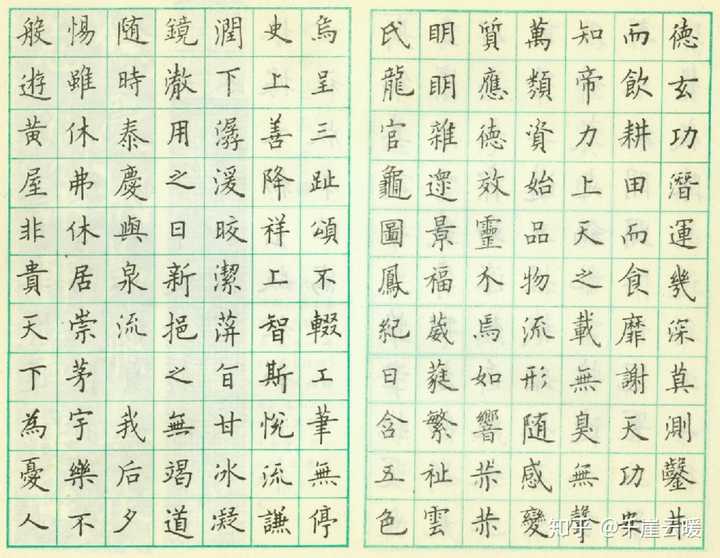 德玄功潛運幾深莫測鑿井
而飲耕田而食靡謝天功安
知帝力上天之載無臭無聲
萬類資始品物流形随感變
質應德效靈介焉如響赫赫
明明雜遝景福葳蕤繁祉雲
氏龍官龜圖鳳紀日含五色
烏呈三趾頌不輟工筆無停
史上善降祥上智斯悅流謙
潤下潺湲晈潔蓱旨甘冰凝
鏡澂用之日新挹之無竭道
随時泰慶與泉流 我后夕
惕雖休弗休居崇茅宇樂不
般遊黃屋非貴天下為憂人
知乎 @千崖云暖